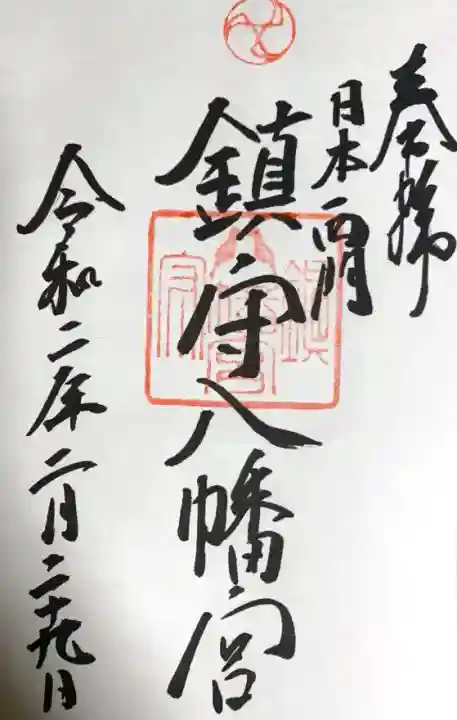 奉拝
日本西門
鎮守八幡宮
令和二年二月二十九日